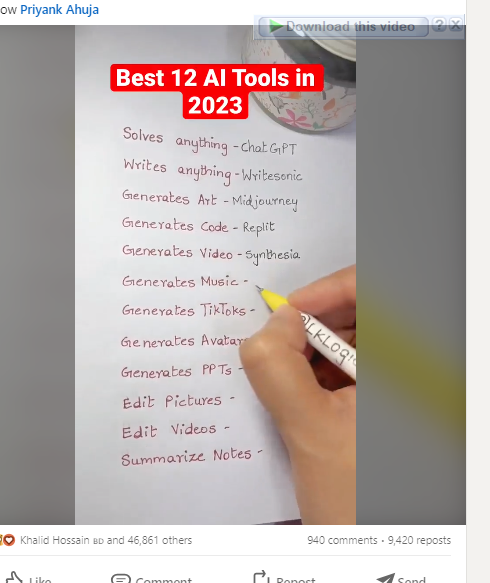 ow Priyank Ahuja
Download this video ? X
Best 12 AI Tools in
2023
Solves anything - ChatGPT
Writes anything - Writesonic
Generates Art - Midjourney
Generates Code - Replit
Generates Video - Synthesia
Generates Music -
Generates TikToks -
Generates Avatar
Generates PPTs -
Edit Pictures -
Edit Videos -
Summarize Notes -
@LKLogic
Khalid Hossain BD and 46,861 others
940 comments • 9,420 reposts
Like Comment Repost Send